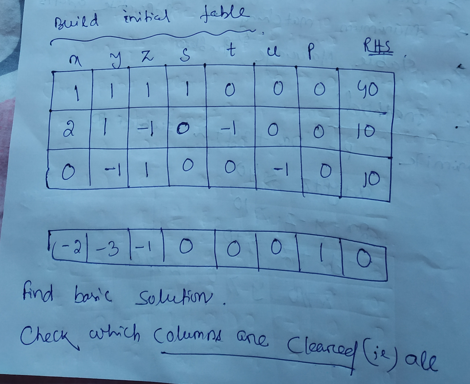 Build initial table
x y z s t u p RHS
1 1 1 1 0 0 0 40
2 1 -1 0 -1 0 0 10
0 -1 1 0 0 -1 0 10
-2 -3 -1 0 0 0 1 0
find basic solution.
Check which columns are cleared (ie) all